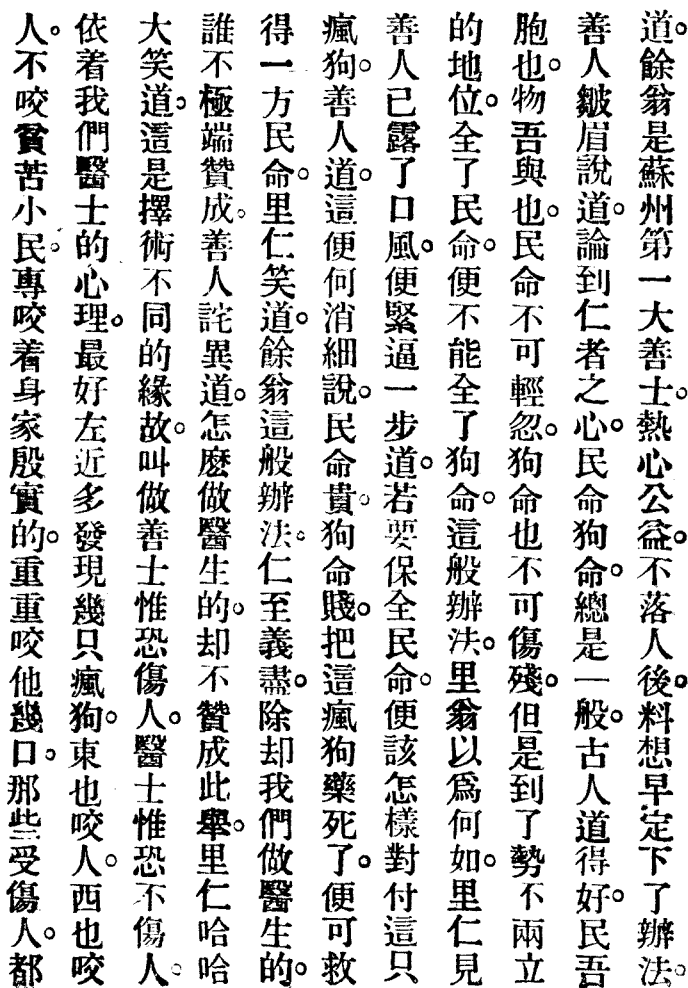 道。餘翁是蘇州第一大善士。熱心公益。不落人後。料想早定下了辦法。
善人皺眉說道。論到仁者之心。民命狗命。總是一般。古人道得好。民吾
胞也。物吾與也。民命不可輕忽。狗命也不可傷殘。但是到了勢不兩立
的地位。全了民命。便不能全了狗命。這般辦法。里翁以爲何如。里仁見
善人已露了口風。便緊逼一步道。若要保全民命。便該怎樣對付這只
瘋狗。善人道。這便何消細說。民命貴。狗命賤。把這瘋狗藥死了。便可救
得一方民命。里仁笑道。餘翁這般辦法。仁至義盡。除却我們做醫生的。
誰不極端贊成。善人詫異道。怎麽做醫生的。却不贊成此舉。里仁哈哈
大笑道。這是擇術不同的緣故。叫做善士惟恐傷人。醫士惟恐不傷人。
依着我們醫士的心理。最好左近多發現幾只瘋狗。東也咬人。西也咬
人。不咬貧苦小民。專咬着身家殷實的。重重咬他幾口。那些受傷人。都